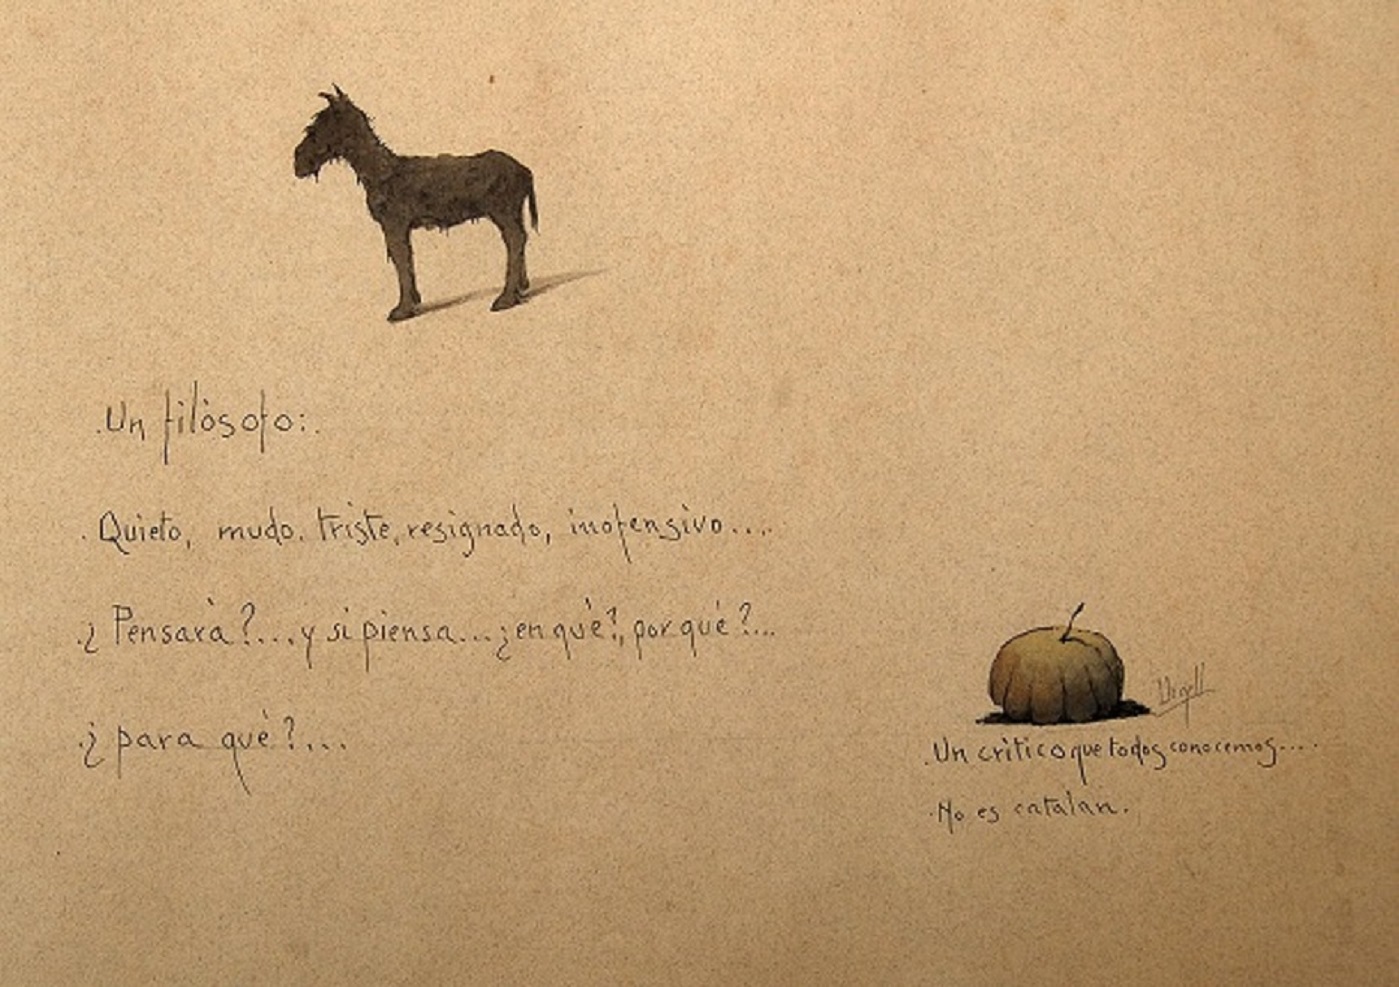 .Un filòsofo:.
. Quieto, mudo. triste, resignado, inofensivo....
.¿ Pensarà?...y si piensa...¿en què?, por què?...
.¿ para què?...
Urgell
.Un crìtico que todos conocemos....
.No es catalan.